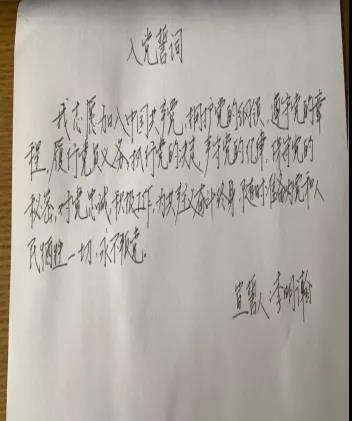 入党誓词
我志愿加入中国共产党，拥护党的纲领，遵守党的章
程，履行党员义务，执行党的决定，严守党的纪律，保守党的
秘密，对党忠诚，积极工作，为共产主义奋斗终身，随时准备为党和人
民牺牲一切，永不叛党。
宣誓人：李明瀚